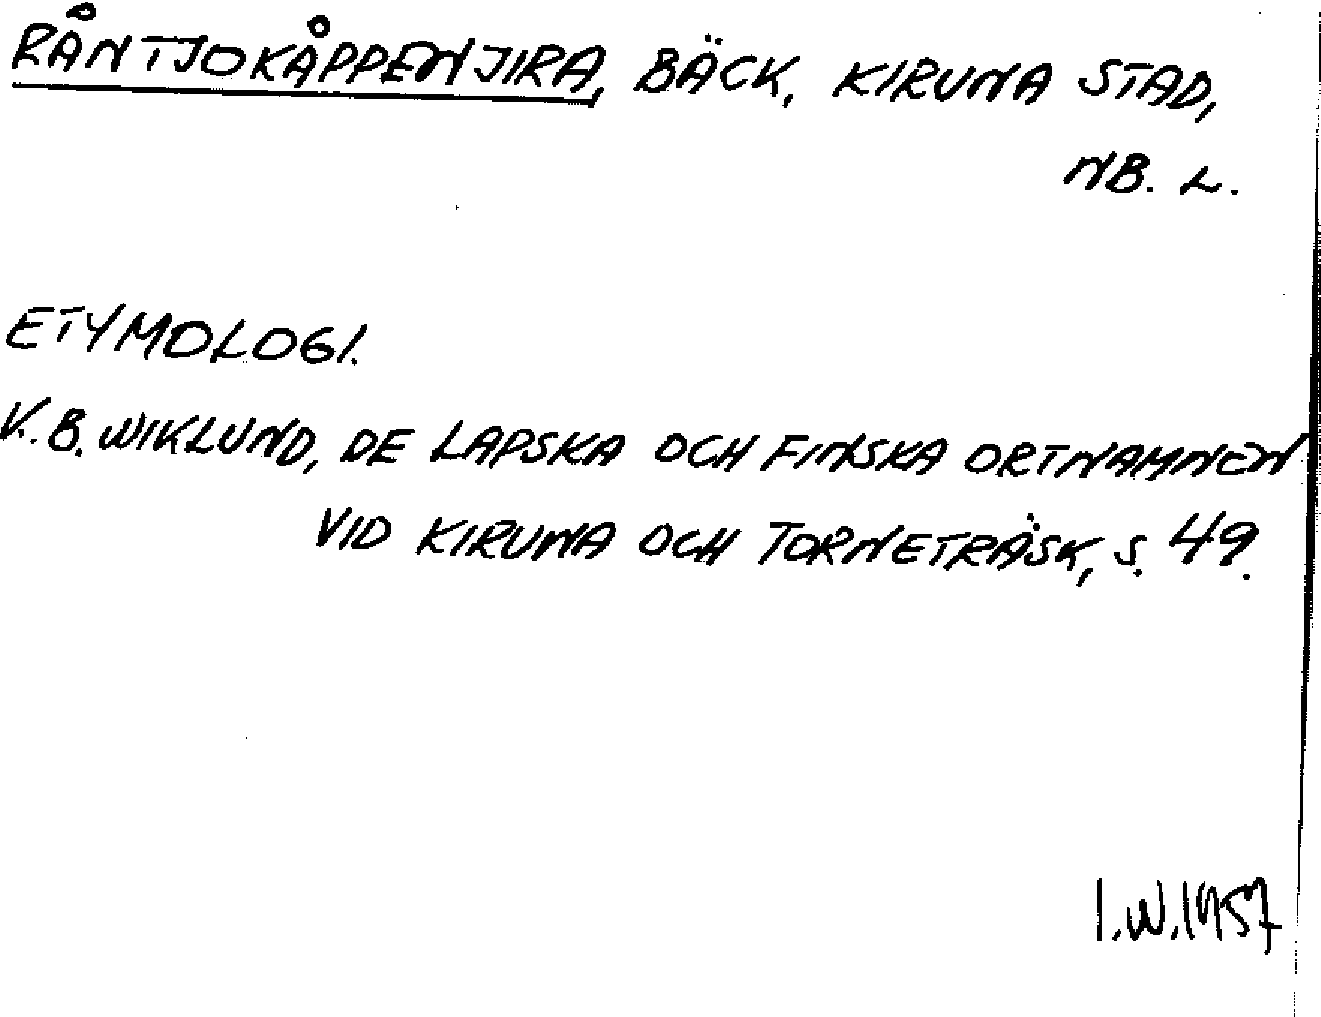 RÅNTJOKÅPPENJIRA, BÄCK, KIRUNA STAD,
NB. L.
ETYMOLOGI.
K.B. WIKLUND, DE LAPSKA OCH FINSKA ORTNAMNEN
VID KIRUNA OCH TORNETRÄSK, S. 49.
I.W. 1957